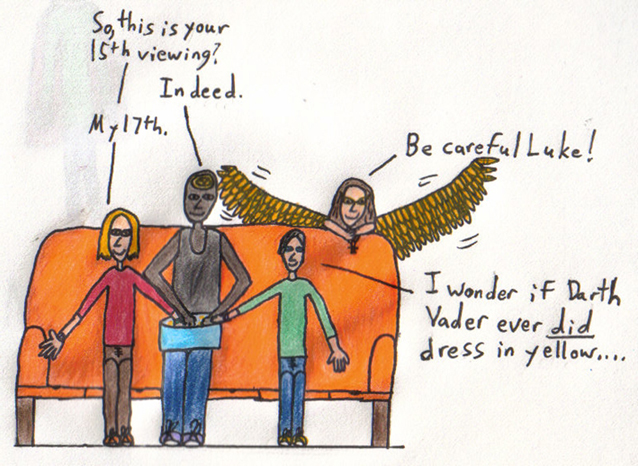 So, this is your
15th viewing?
Indeed.
My 17th.
Be careful Luke!
I wonder if Darth
Vader ever did
dress in yellow....